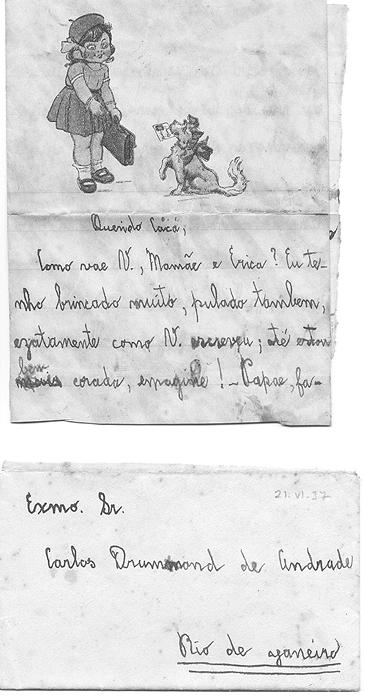 Querido Cácá;
Como vae V., Mamãe e Erica? Eu te-
nho brincado muito, pulado tambem,
ezatamente como V. escreveu; até estou
bem
corada, imagine! - Papae, fa-
21.VI.37
Exmo. Sr.
Carlos Drummond de Andrade
Rio de Janeiro